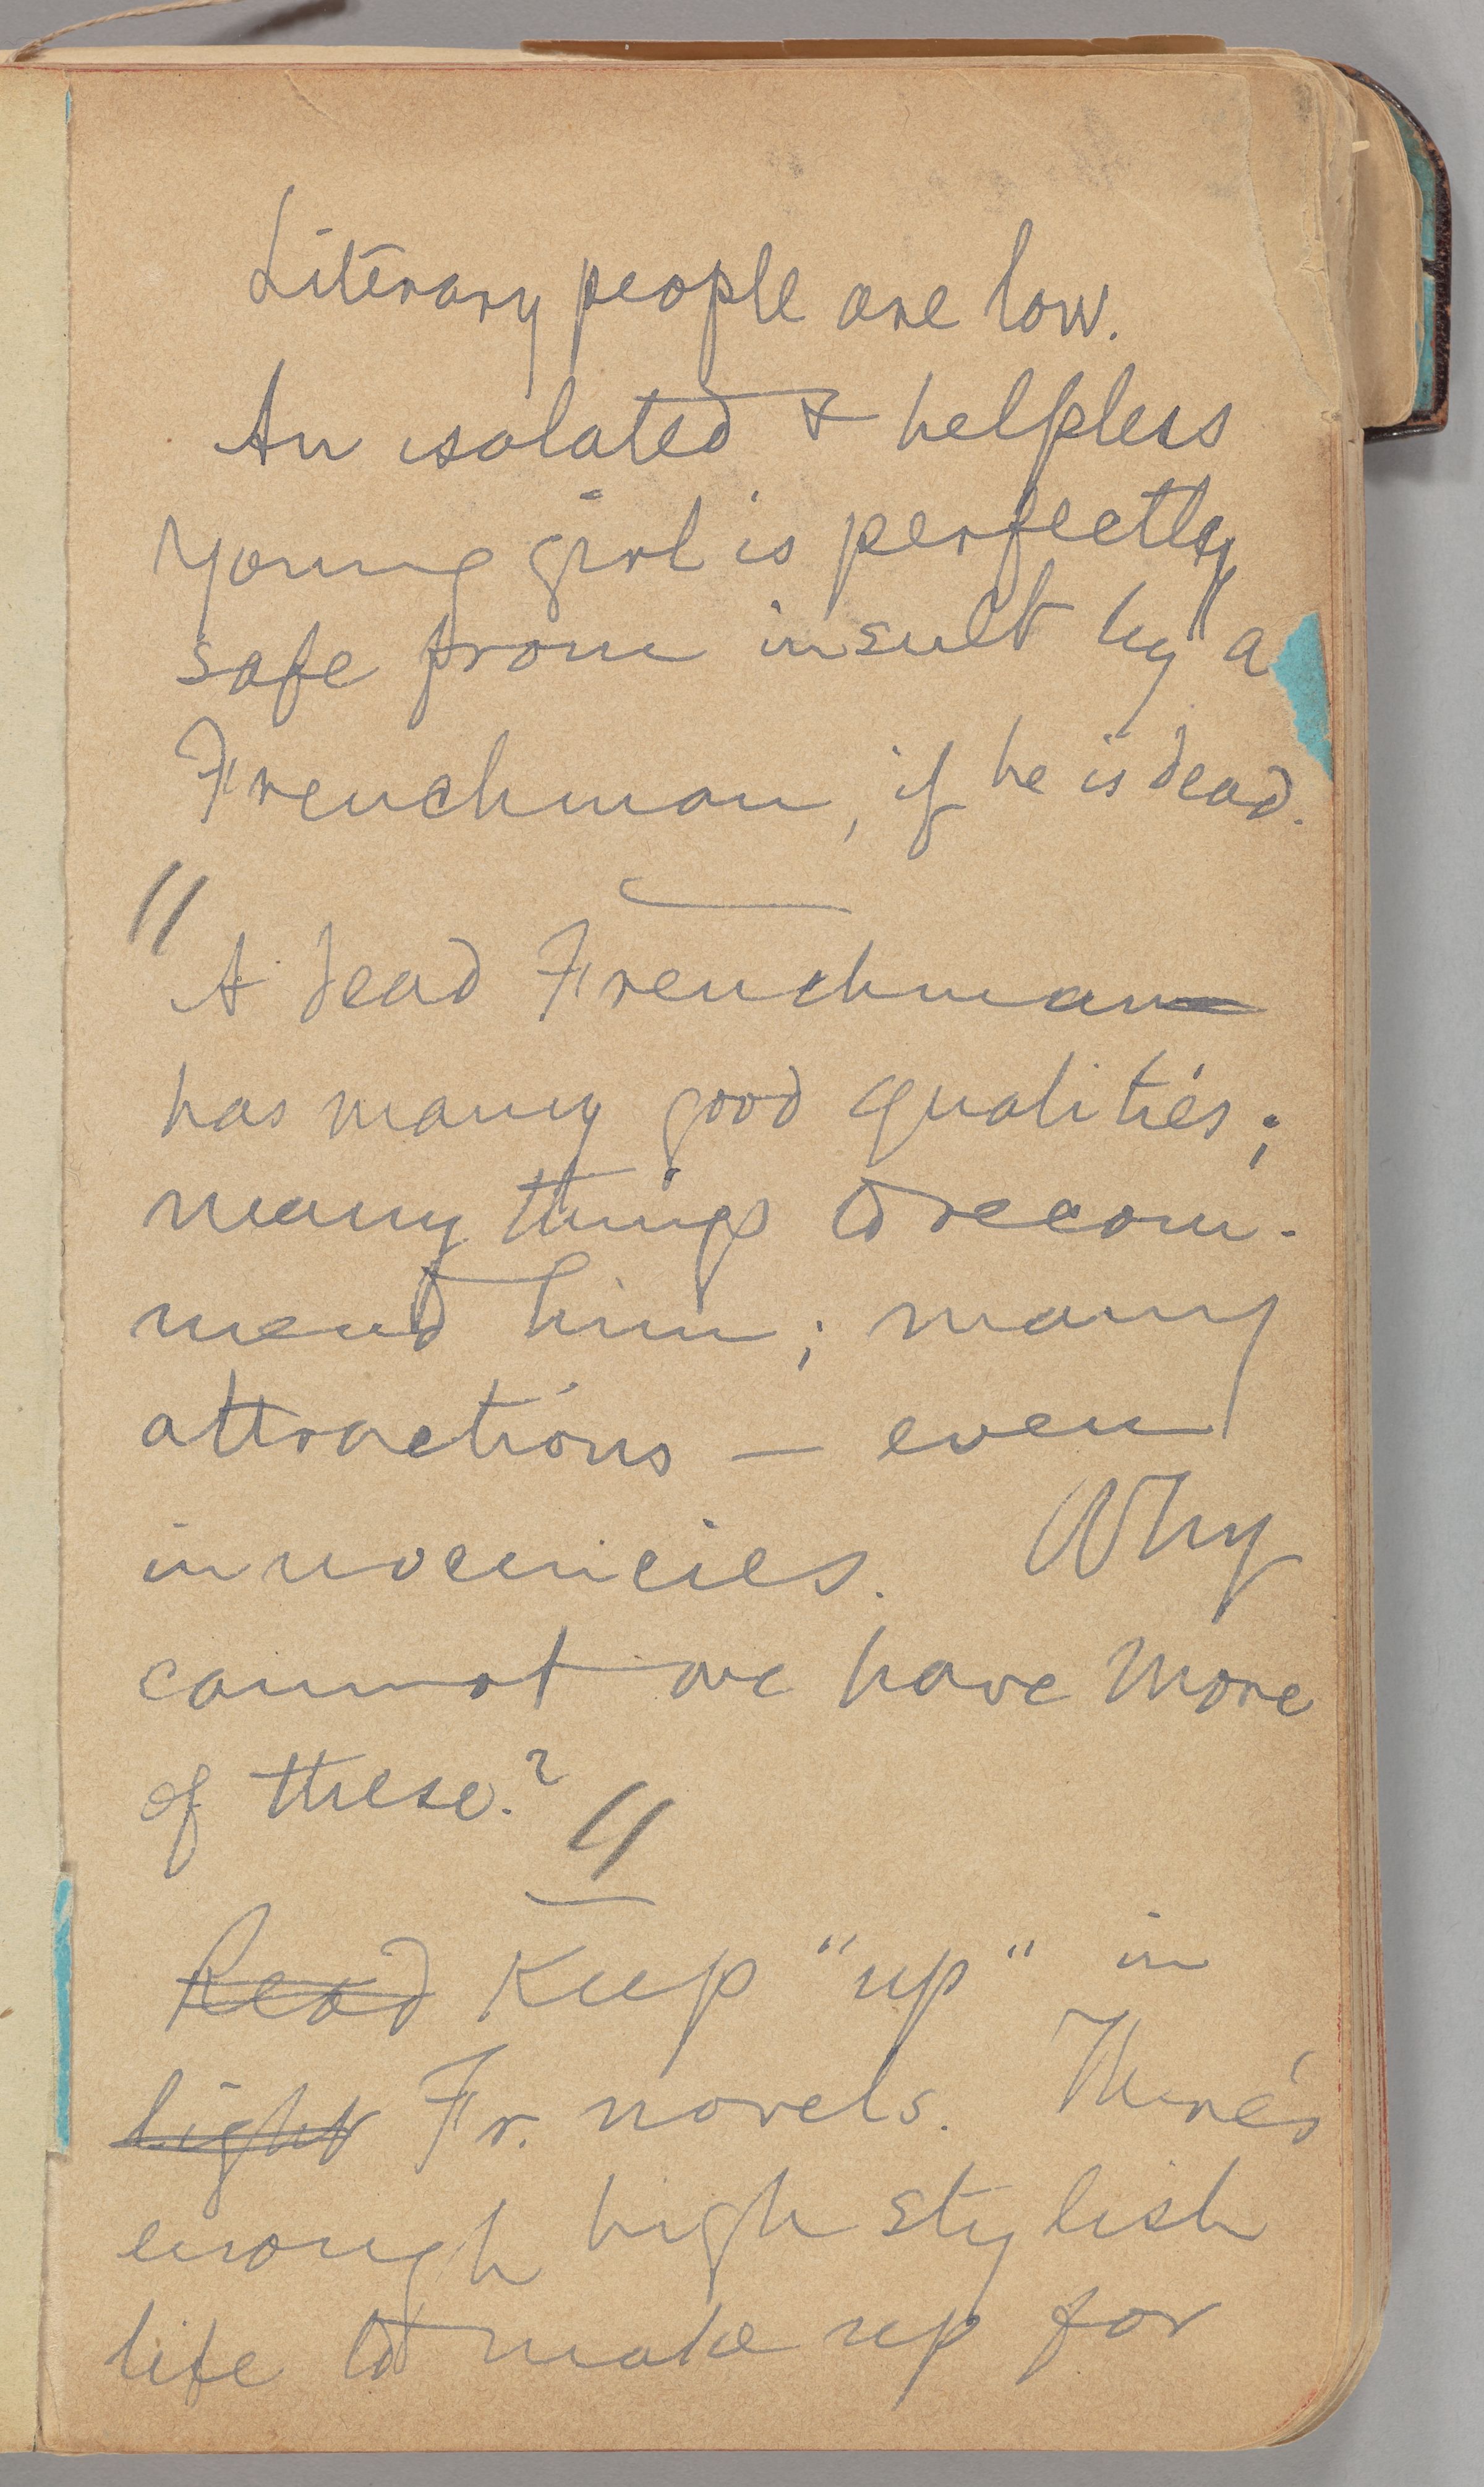 Literary people are low.
An isolated & helpless
young girl is perfectly
safe from insult by a
Frenchman, if he is dead.
"
A dead Frenchman
has many good qualities;
many things to recom-
mend him; many
attractions — even
innocencies. Why
cannot we have more
of these?"
Read Keep "up" in
light Fr. novels. There's
enough high stylish
life to make up for